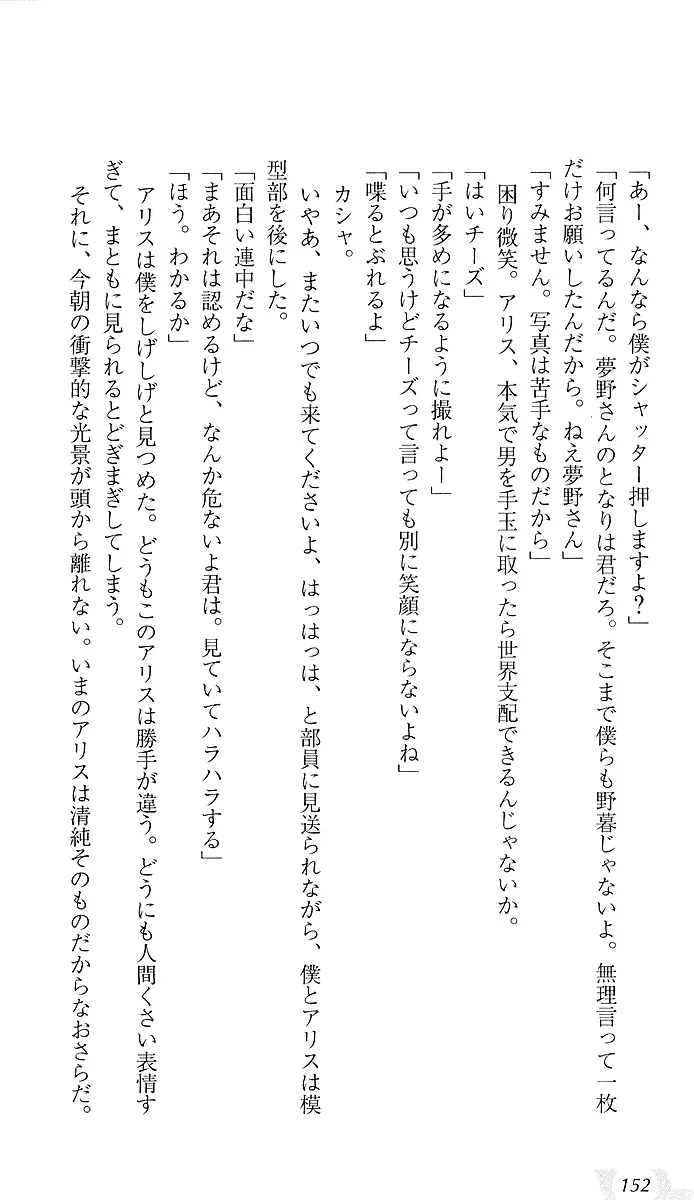 「あー、なんなら僕がシャッター押しますよ?」
「何言ってるんだ。夢野さんのとなりは君だろ。そこまで僕らも野暮じゃないよ。無理言って一枚
だけお願いしたんだから。ねえ夢野さん」
「すみません。写真は苦手なものだから」
困り微笑。アリス、本気で男を手玉に取ったら世界支配できるんじゃないか。
「はいチーズ」
「手が多めになるように撮れよー」
「いつも思うけどチーズって言っても別に笑顔にならないよね」
「喋るとぶれるよ」
カシャ。
いやあ、またいつでも来てくださいよ、はっはっは、と部員に見送られながら、僕とアリスは模
型部を後にした。
「面白い連中だな」
「まあそれは認めるけど、なんか危ないよ君は。見ていてハラハラする」
「ほう。わかるか」
アリスは僕をしげしげと見つめた。どうもこのアリスは勝手が違う。どうにも人間くさい表情す
ぎて、まともに見られるとどぎまぎしてしまう。
それに、今朝の衝撃的な光景が頭から離れない。いまのアリスは清純そのものだからなおさらだ。
152